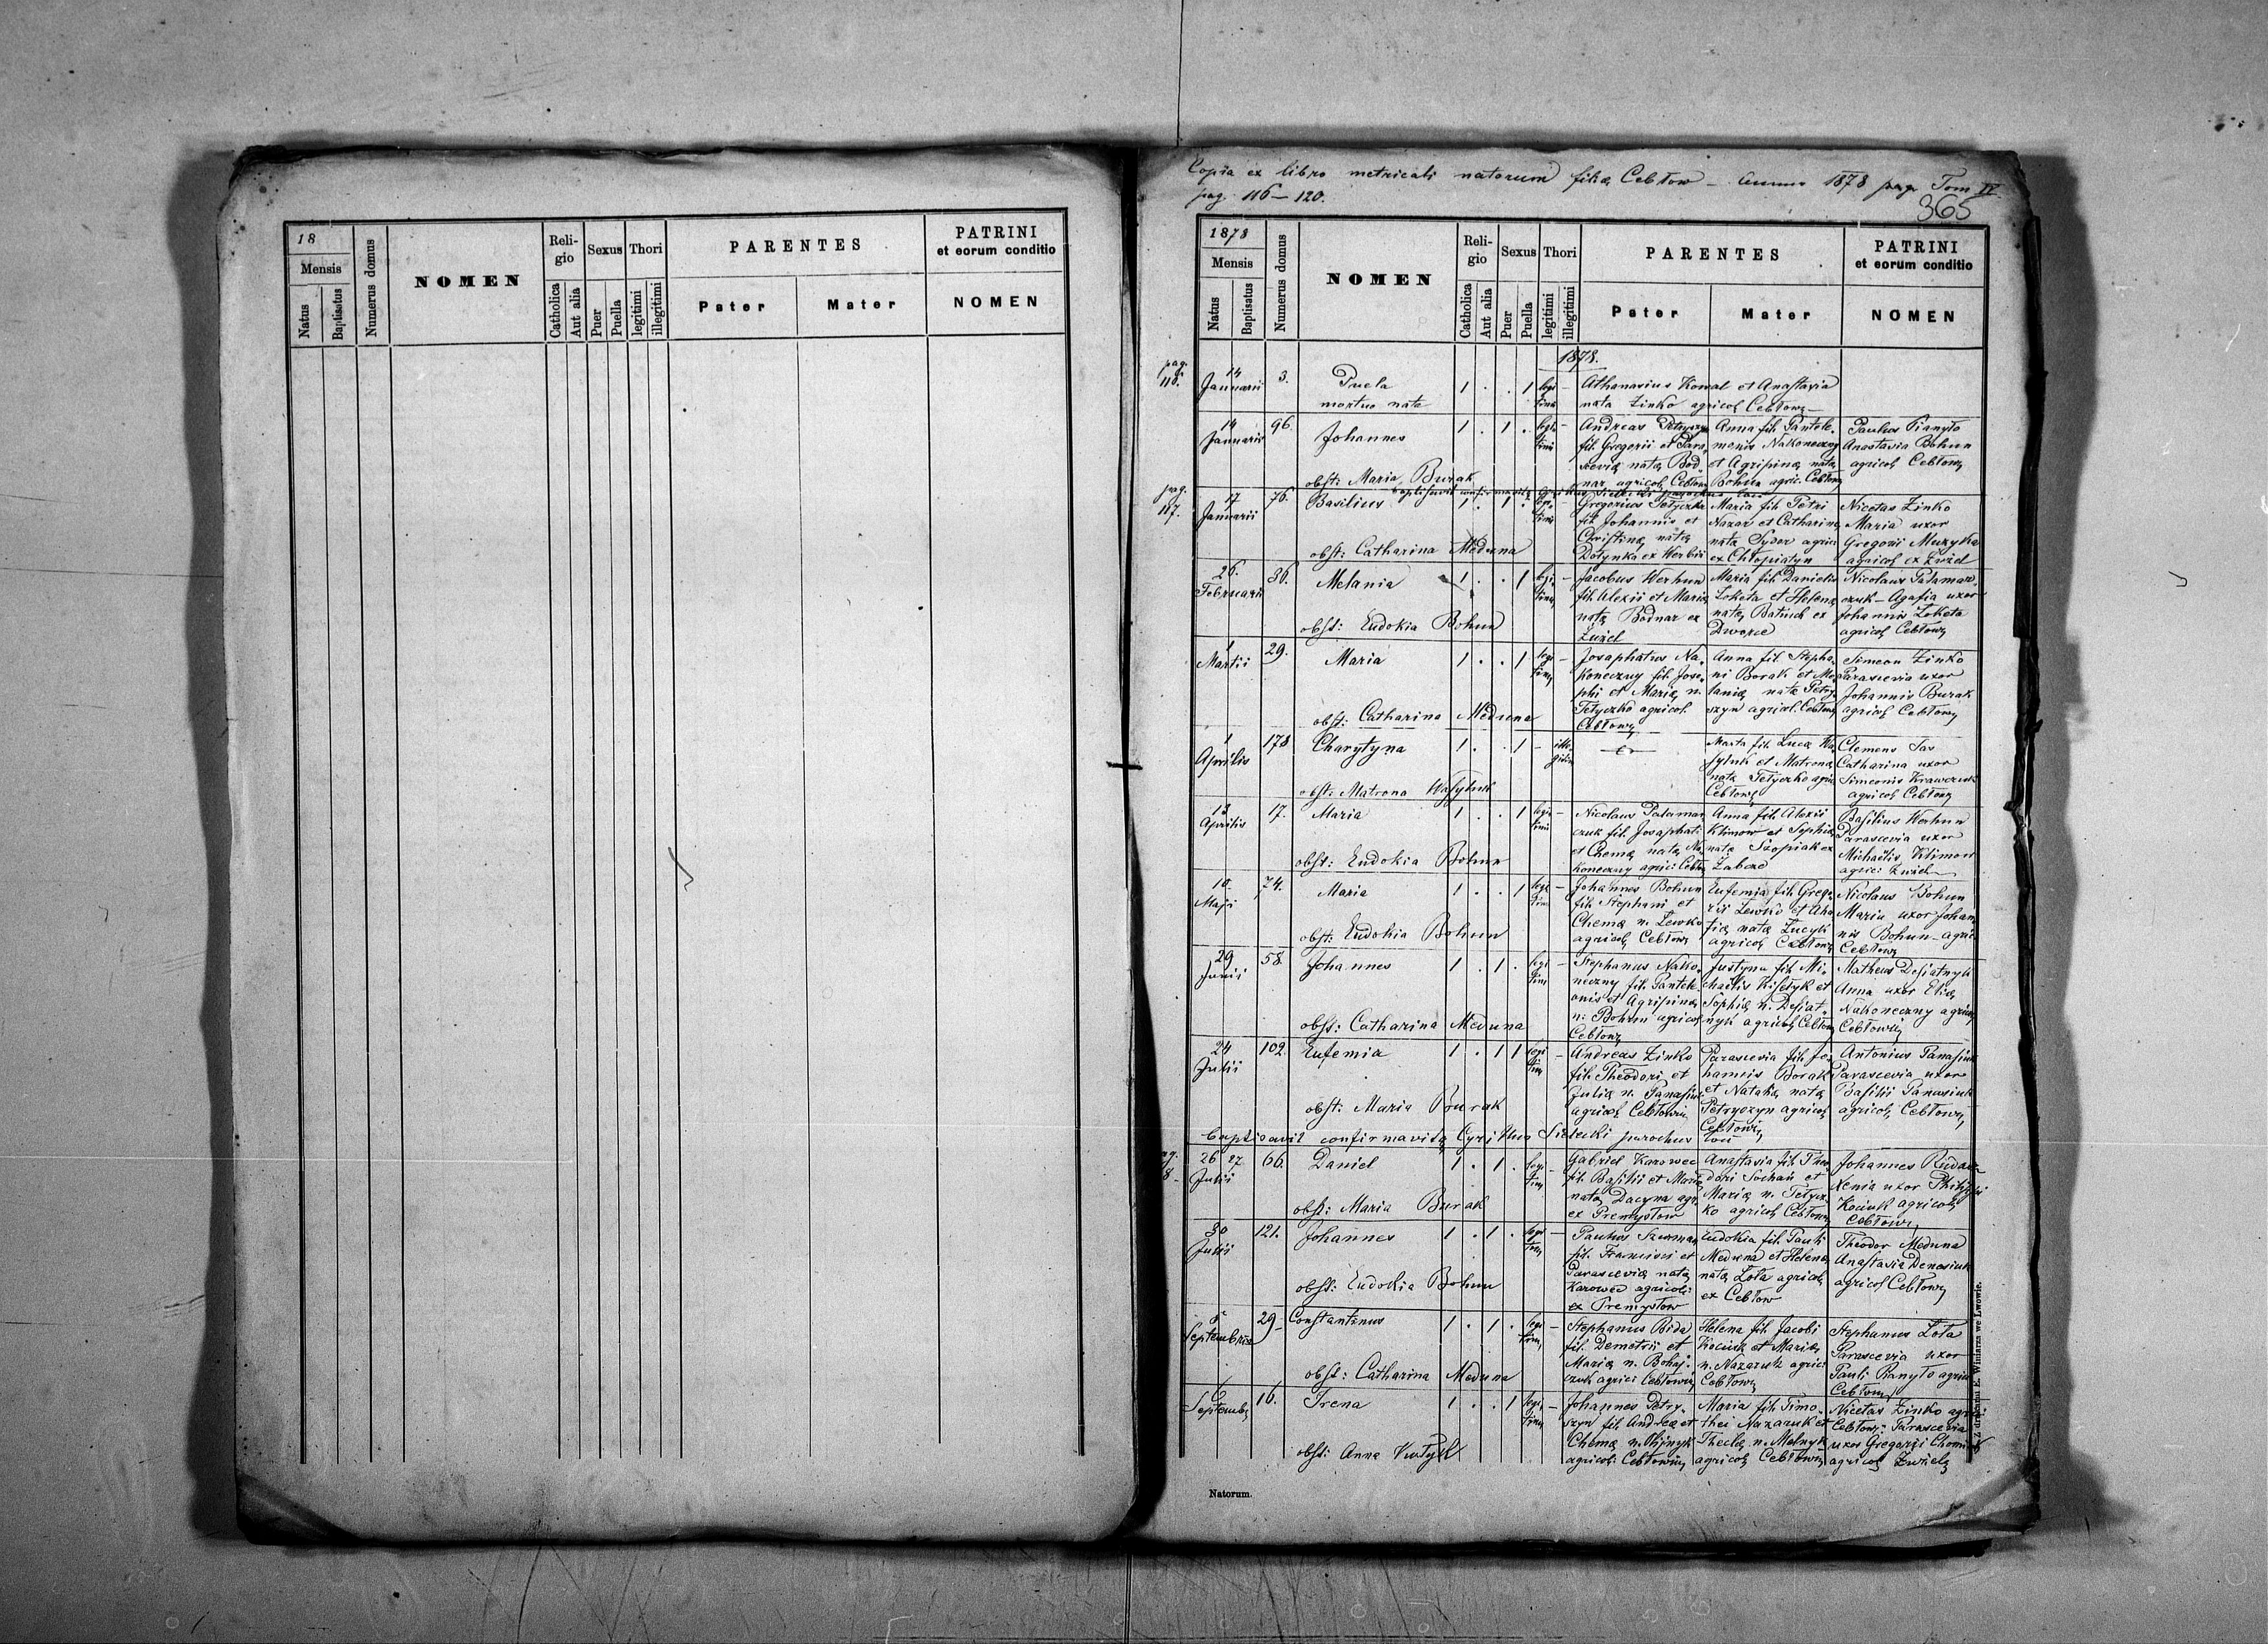 18
Mensis
Natus
Baptisatus
Numerus domus
NOMEN
Reli-
gio
Catholica
Aut alia
Sexus
Puer
Puella
Thori
legitimi
illegitimi
PARENTES
Pater
Mater
PATRINI
et eorum conditio
NOMEN
Copia ex libro metricali natorum filiæ Cebłow – Anno 1878 pag. Tom IV
pag. 116 – 120.
365
1878
Mensis
Natus
Baptisatus
Numerus domus
NOMEN
Reli-
gio
Catholica
Aut alia
Sexus
Puer
Puella
Thori
legitimi
illegitimi
PARENTES
Pater
Mater
PATRINI
et eorum conditio
NOMEN
1878.
pag.
116.
14
Januarii
3.
Puela
mortuo nata
1 . . 1 legi- –
timi
Athanasius Kowal et Anastasia
nata Zinko agricol Cebłow
14
Januarii
96.
Johannes
obst: Maria Burak
1 . 1 . legi-
timi
Andreas Petryszyn
fil. Gregorii et Para-
sceviæ nata Bod-
nar agricol Cebłow
Anna fil. Pantele-
monis Nakoneczny
et Agripinæ nata
Bohun agric. Cebłow
Paulus Pianyło
Anastasia Bohun
agricol Cebłow
pag.
117.
17
Januarii
76.
Basilius
obst: Catharina Meduna
1 . 1 . legi-
timi
Gregorius Tetyczka
fil. Johannis et
Christinæ nata
Dotynka ex Werbiż
Maria fil. Petri
Nazar et Catharinæ
nata Sydor agric
ex Chłopiatyn
Nicetas Zinko
Maria uxor
Gregorii Muzyka
agricol ex Żużel
26.
Februarii
36.
Melania
obst: Eudokia Bohun
1 . . 1 legi- –
timi
Jacobus Werhun
fil. Alexii et Mariæ
nata Bodnar ex
Żużel
Maria fil. Danielis
Loketa et Helenæ
nata Batiuch ex
Dworce
Nicolaus Palamar-
czuk – Agafia uxor
Johannis Loketa
agricol Cebłow
1
Martii
29.
Maria
obst: Catharina Meduna
1 . . 1 legi- –
timi
Josaphatus Na-
koneczny fil. Jose-
phi et Mariæ n.
Tetyczko agricol.
Cebłow
Anna fil. Stepha-
ni Borak et Me-
laniæ nata Petry-
szyn agricol. Cebłow
Simeon Zinko
Parascevia uxor
Johannis Burak
agricol Cebłow
1
Aprilis
178
Charytyna
obst: Matrona Wasyluk
1 . . 1 – ille-
gitimi
Marta fil. Lucæ Wa-
syluk et Matronæ
nata Tetyczko agric
Cebłow
Clemens Jas
Catharina uxor
Simeonis Krawczuk
agricol Cebłow
13
Aprilis
17.
Maria
obst: Eudokia Bohun
1 . . 1 legi- –
timi
Nicolaus Palamar-
czuk fil. Josaphati
et Chemæ nata Na-
koneczny agric. Cebłow
Anna fil. Alexii
Klimow et Sophiæ
nata Szopiak ex
Żabcze
Basilius Werhun
Parascevia uxor
Michaëlis Klimow
agric: Żużel
10.
Maji
74.
Maria
obst: Eudokia Bohun
1 . . 1 legi- –
timi
Johannes Bohun
fil. Stephani et
Chemæ n. Lewko
agricol Cebłow
Eufemia fil. Grego-
rii Lewko et Aha-
fiæ nata Lucyk
agricol Cebłow
Nicolaus Bohun
Maria uxor Johan-
nis Bohun – agric
Cebłow
29
Junii
58.
Johannes
obst: Catharina Meduna
1 . 1 . legi- –
timi
Stephanus Nako-
neczny fil. Pantele-
onis et Agripinæ
n. Bohun agricol
Cebłow
Justyna fil. Mi-
chaëlis Kiselyk et
Sophiæ n. Desiat-
nyk agricol Cebłow
Matheus Desiatnyk
Anna uxor Eliæ
Nakoneczny agricol
Cebłow
24
Julii
102.
Eufemia
obst: Maria Burak
1 . 1 1 legi- –
timi
Andreas Zinko
fil. Theodori et
Juliæ n. Panasiuk
agricol Cebłow
Parascevia fil. Jo-
hannis Borak
et Nataliæ nata
Petryszyn agricol
Cebłow
Antonius Panasiuk
Parascevia uxor
Basilii Panasiuk
agricol Cebłow
baptisavit confirmavitq Cyrillus Sielecki parochus loci
26 27
Julii
66.
Daniel
obst: Maria Burak
1 . 1 . legi- –
timi
Gabriel Karowec
fil. Basilii et Mariæ
nata Dacyna agr.
ex Premysłow
Anastasia fil. Theo-
dori Sochan et
Mariæ n. Tetycz-
ko agricol Cebłow
Johannes
Xenia uxor Philippi
Kociuk agricol
Cebłow
30
Julii
121.
Johannes
obst: Eudokia Bohun
1 . 1 . legi-
timi
Paulus Szurman
fil. Francisci et
Parasceviæ nata
Karowec agricol:
ex Premysłow
Eudokia fil. Pauli
Meduna et Helenæ
nata Lota agricol
ex Cebłow
Theodor Meduna
Anastasia Denesiuk
agricol Cebłow
5
Septembris
29
Constantinus
obst: Catharina Meduna
1 . 1 . legi- –
timi
Stephanus Bida
fil. Demetrii et
Mariæ n. Bohaj-
czuk agric: Cebłow
Helena fil. Jacobi
Kociuk et Mariæ
n. Nazaruk agric:
Cebłow
Stephanus Lota
Parascevia uxor
Pauli Pianyło agric
Cebłow
6
Septembr
16.
Irena
obst: Anna
1 . . 1 legi- –
timi
Johannes Petry-
szyn fil. Andreæ et
Chemæ n. Olijnyk
agricol: Cebłow
Maria fil. Timo-
thei Nazaruk et
Theclæ n. Melnyk
agricol Cebłow
Nicetas Zinko agric
Cebłow; Parascevia
uxor Gregorii
agricol Żużel
Natorum.
Z drukarni E. Winiarza we Lwowie.